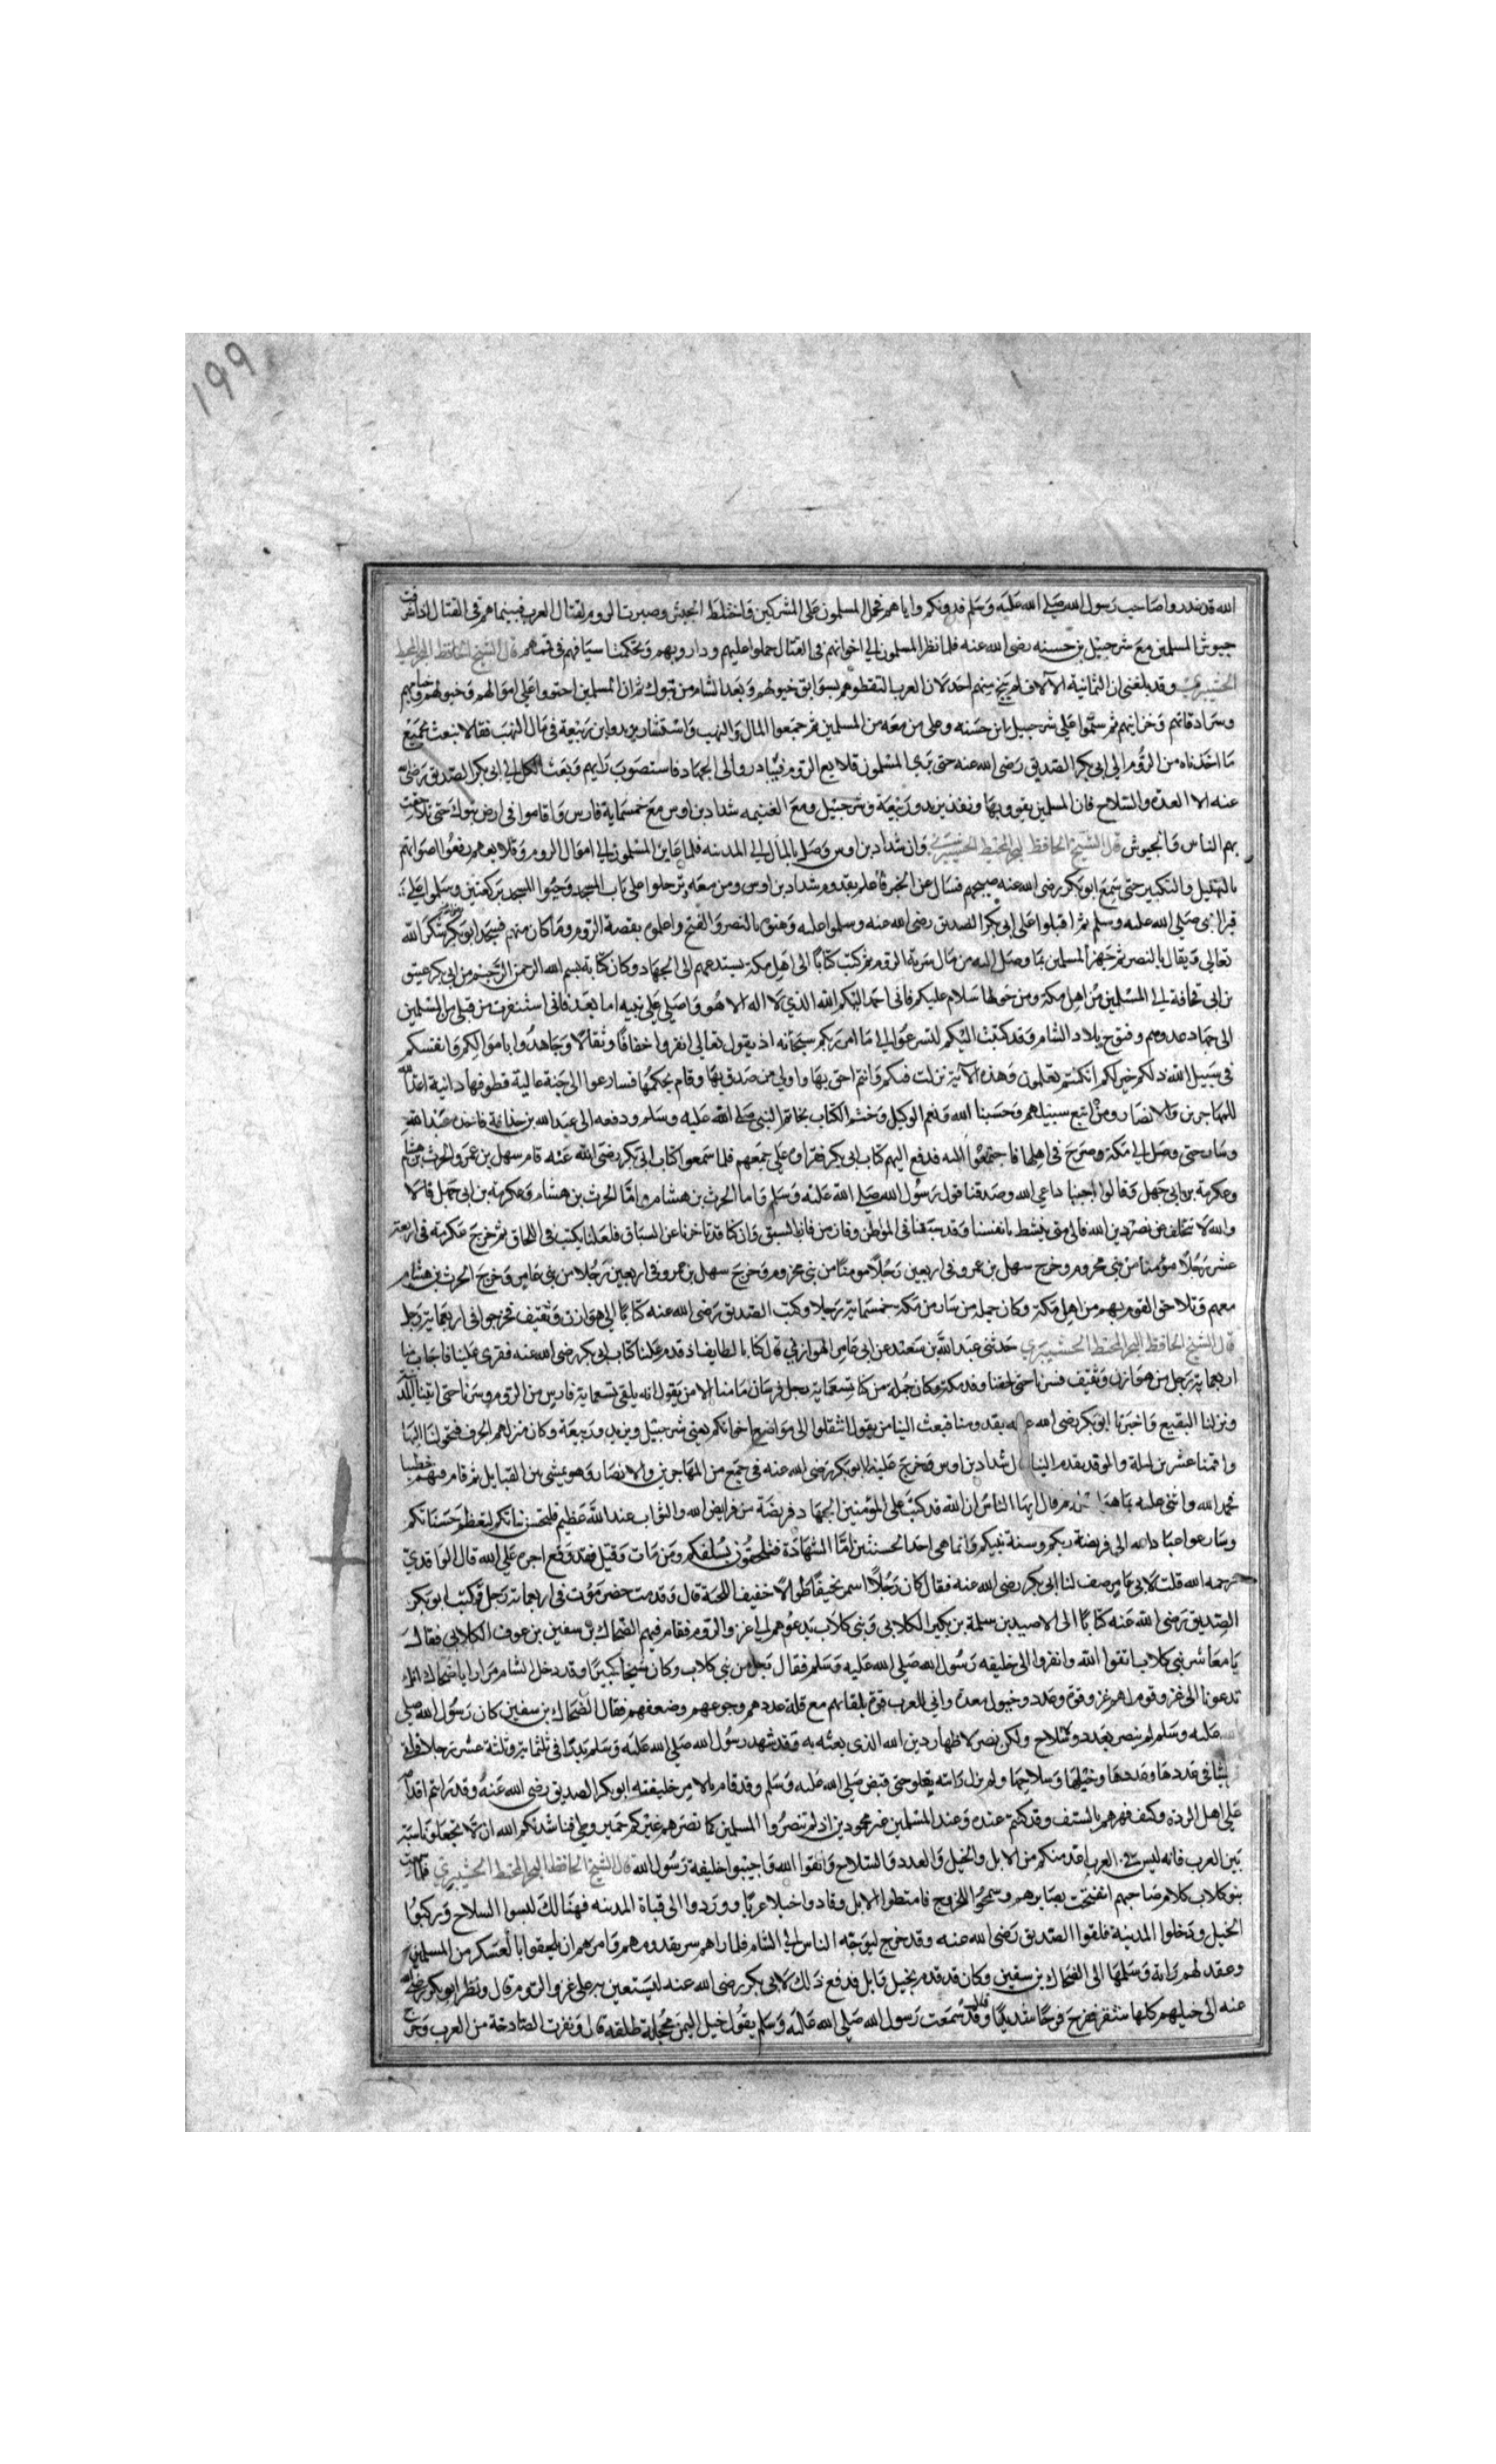 199
الله قد غدروا صاحب رسول الله صلى الله عليه وسلم فدونكم واياهم فحمل المسلمون على المشركين واختلط الجيش وصبرت الروم لقتال العرب فبينما هم في القتال اذ اشرفت
جيوش المسلمين مع شرحبيل بن حسنه رضى الله عنه فلما نظر المسلمون الي اخوانهم في القتال حملوا عليهم وداروبهم وتحكمت اسيافهم في قممهم قال الشيخ الحافظ البحر المحيط
الحشيبري وقد بلغنى ان الثمانية الالاف لم ينج منهم احد لان العرب التقطوهم بسوابق خيولهم وبعد الشام من تبوك ثم ان المسلمين احتووا على اموالهم وخيولهم وخيامهم
وسرادقاتهم وخزاينهم ثم سلموا علي شرحبيل بن حسنه وعلى من معه من المسلمين ثم جمعوا المال والنهب واستشار يزيد وابن ربيعة في مال النهب فقالا نبعث بجميع
ما اخذناه من الروم الى ابى بكر الصديق رضى الله عنه حتى المسلمون قلايع الروم فيبادروا الى الجهاد فاستصوب رايهم وبعث الكل الي ابى بكر الصديق رضى الله
عنه الا العدة والسلاح فان المسلمين يقوون بها ونفذ يزيد وربيعة وشرحبيل ومع الغنيمه شداد بن اوس مع خمسماية فارس واقاموا في ارض تبوك حتى تلاحقت
بهم الناس والجيوش قال الشيخ الحافظ البحر المحيط الحشيبري وان شداد بن اوس وصل بالمال الي المدينه فلما عاين المسلمون الي اموال الروم وقلايعهم رفعوا اصواتهم
بالتهليل والتكبير حتى سمع ابو بكر رضى الله عنه صيحهم فسال عن الخبر فاعلم بقدوم شداد بن اوس ومن معه وترجلوا على باب المسجد وحيوا المسجد بركعتين وسلموا علي
قبر النبي صلى الله عليه وسلم ثم اقبلوا على ابى بكر الصديق رضى الله عنه وسلموا عليه وهنوه بالنصر والفتح واعلموه بقصة الروم وما كان منهم فسجد ابو بكر شكرا لله
تعالى وتفال بالنصر ثم جهز المسلمين بما وصل اليه من مال سرية الروم ثم كتب كتابا الى اهل مكة يستدعيهم الى الجهاد وكان كتابه بسم الله الرحمن الرحيم من ابى بكر عتيق
بن ابى قحافة الي المسلمين من اهل مكة ومن حولها سلام عليكم فانى احمد اليكم الله الذي لا اله الا هو واصلي علي نبيه اما بعد فانى استنفرت من قبلي من المسلمين
الى جهاد عدوهم وفتوح بلاد الشام وقد كتبت اليكم لتسرعوا الي ما امر ربكم سبحانه اذ يقول تعالى انفروا خفافا وثقالا وجاهدوا باموالكم وانفسكم
في سبيل الله ذلكم خير لكم ان كنتم تعلمون وهذه الاية نزلت فيكم وانتم احق بها واولي من صدق بها وقام بحكمها فسارعوا الى جنة عالية قطوفها دانية اعدها الله
للمهاجرين والانصار ومن اتبع سبيلهم وحسبنا الله ونعم الوكيل وختم الكتاب بخاتم النبي صلى الله عليه وسلم ودفعه الى عبد الله بن حذافة فاخذه عبد الله
وسار حتى وصل الي مكة وصرخ في اهلها فاجتمعوا اليه فدفع اليهم كتاب ابى بكر فقراه علي جمعهم فلما سمعوا كتاب ابى بكر رضى الله عنه قام سهل بن عمرو والحرث بن هشام
وعكرمة بن ابى جهل وقالوا اجبنا داعي الله وصدقنا قول رسول الله صلى الله عليه وسلم فاما الحرث بن هشام واما الحرث بن هشام وعكرمة بن ابى جهل قالا
والله لا نتخلف عن نصر دين الله فالى متى نبشط بانفسنا وقد سبقنا في المواطن وفاز من فاز بالسبق وان كنا قد تاخرنا عن السباق فلعلنا يكتب في اللحاق ثم خرج عكرمة في اربعة
عشر رجلا مؤمنا من بني مخزوم وخرج سهل بن عمرو في اربعين رجلا مومنا من بني مخزوم وخرج سهل بن عمرو في اربعين رجلا من بني عامر وخرج الحرث بن هشام
معهم وتلاحق القوم بهم من اهل مكة وكان جملة من سار من مكة خمسماية رجلا وكتب الصديق رضى الله عنه كتابا الي هوازن وثقيف فخرجوا في اربعماية رجل
قال الشيخ الحافظ البحر المحيط الحشيبري حدثني عبد الله بن سعيد عن ابى عامر الهوازني قال كنا بالطايف اذ قدم علينا كتاب ابى بكر رضى الله عنه فقرى علينا فاجاب منا
اربعماية رجل من هوازن وثقيف فسرنا حتى لحقنا وفد مكة وكان جملة من كنا تسعماية رجل فرسان ما منا الا من يقول انه يلقى تسعماية فارس من الروم وسرنا حتى اتينا المدينة
ونزلنا البقيع واخبرنا ابو بكر رضى الله عنه بقدومنا فبعث الينا من يقول انتقلوا الى مواضع اخوانكم يعني شرحبيل ويزيد وربيعة وكان منزلهم الجرف فتحولنا اليها
واقمنا عشرين ليلة والوفد يقدم الينا شداد بن اوس وخرج علينا ابو بكر رضى الله عنه في جمع من المهاجرين والانصار وهو يمشي بين القبايل ثم قام فيهم خطيبا
فحمد الله واثنى عليه بما هو ثم قال ايها الناس ان الله قد كتب على المؤمنين الجهاد فريضة من فرايض الله والثواب عند الله عظيم فلتحسن نياتكم لتعظم حسناتكم
وسارعوا عباد الله الى فريضة ربكم وسنة نبيكم وانما هي احد الحسنتين اما الشهادة فتلحقون بسلفكم ومن مات وقتل فقد وقع اجره علي الله قال الواقدي
رحمه الله قلت لابى عامر صف لنا ابى بكر رضى الله عنه فقال كان رجلا اسمر نحيفا طوالا خفيف اللحية قال وقدمت حضرموت في اربعماية رجل وكتب ابو بكر
الصديق رضى الله عنه كتابا الى الاصيد بن سلمة بن بكير الكلابي وبني كلاب يدعوهم الي غزو الروم فقام فيهم الضحاك بن سفين بن عوف الكلابي فقال
يا معاشر بني كلاب اتقوا الله وانفروا الى خليفه رسول الله صلي الله عليه وسلم فقال رجل من بني كلاب وكان شيخا كبيرا وقد دخل الشام مرارا يا ضحاك انك
تدعونا الى غزو قوم لهم عز وقوة وعدد وخيول معدة واني للعرب قوة بلقايهم مع قلة عددهم وجوعهم وضعفهم فقال الضحاك بن سفين كان رسول الله صلي
عليه وسلم لم ينصر بعدد ولا سلاح ولكن نصر لاظهار دين الله الذى بعثه به وقد شهد رسول الله صلي الله عليه وسلم بدرا في ثلثماية وثلثة عشر رجلا
في عددها وعددها وخيلها وسلاحها ولم تزل رايته تعلو حتى قبض صلي الله عليه وسلم وقد قام بالامر خليفته ابو بكر الصديق رضى الله عنه وقد رايتم
علي اهل الردة وكيف قهرهم بالسيف وقد كنتم عنده وعند المسلمين غير محمودين اذ لم تنصروا المسلمين كما نصرهم غيركم حمير وطي فناشدتكم الله ان لا تجعلونا سبة
بين العرب فانه ليس العرب اعد منكم من الابل والخيل والعدد والسلاح واتقوا الله واجيبوا خليفة رسول الله قال الشيخ الحافظ البحر المحيط الحشيبري فلما سمعت
بنو كلاب كلام صاحبهم انفتحت بصايرهم وسمحوا للخروج فامتطوا الابل وقادوا خيلا عربا ووردوا الى قباة المدينه فهنالك لبسوا السلاح وركبوا
الخيل ودخلوا المدينة فلقوا الصديق رضى الله عنه وقد خرج ليوجه الناس الى الشام فلما راهم سر بقدومهم وامرهم ان يلحقوا بالعسكر من المسلمين
وعقد لهم راية وسلمها الى الضحاك بن سفين وكان قد قدم بخيل قابل فدفع ذلك لابى بكر رضى الله عنه ليستعين بر على غزو الروم قال ونظر ابو بكر رضى الله
عنه الى خيلهم كلها شقر ففرح فرحا شديدا وقال قد سمعت رسول الله صلي الله عليه وسلم يقول خيل اليمن محجلة طلقه قال ونفرت الصادخة من العرب وخرج